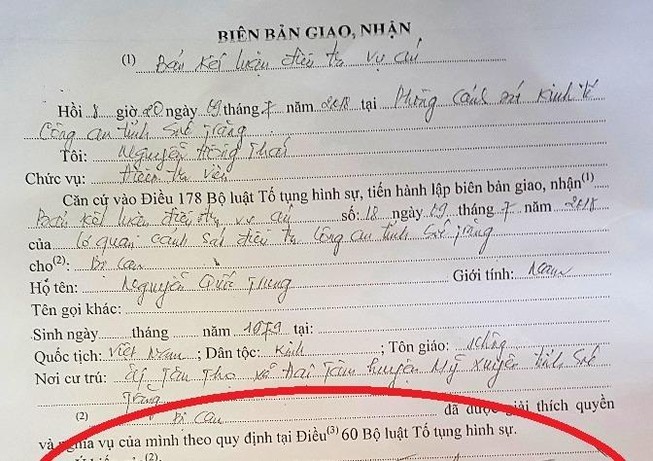 BIÊN BẢN GIAO, NHẬN
(1) Bản kết luận điều tra vụ án
Hồi 8 giờ 20 ngày 09 tháng 7 năm 2018 tại Phòng Cảnh sát Kinh tế
Công an tỉnh Sóc Trăng
Tôi: Nguyễn Hồng Thái
Chức vụ: Điều tra viên
Căn cứ vào Điều 178 Bộ luật Tố tụng hình sự, tiến hành lập biên bản giao, nhận(1)
Bản kết luận điều tra vụ án số: 18 ngày 09 tháng 7 năm 2018
của Cơ quan cảnh sát điều tra Công an tỉnh Sóc Trăng
cho(2): Bị can
Họ tên: Nguyễn Quốc Giới tính: Nam
Tên gọi khác:
Sinh ngày tháng năm 1979 tại:
Quốc tịch: Việt Nam; Dân tộc: Kinh; Tôn giáo: Không
Nơi cư trú: Ấp Tân Thọ xã Đại Tâm huyện Mỹ Xuyên tỉnh Sóc
Trăng
(2) Bị can đã được giải thích quyền
và nghĩa vụ của mình theo quy định tại Điều(3) 60 Bộ luật Tố tụng hình sự.
(2).